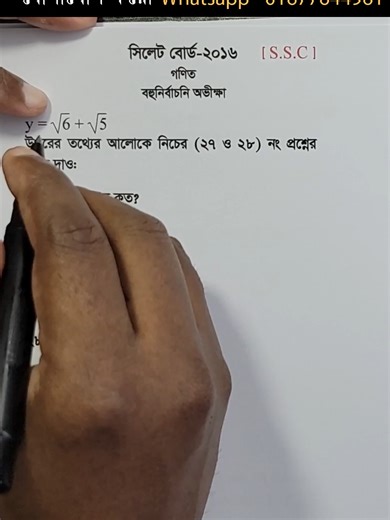 Whatsapp
সিলেট বোর্ড-২০১৬ [ S.S.C ]
গণিত
বহুনির্বাচনি অভীক্ষা
y = √6 + √5
তথ্যের আলোকে নিচের (২৭ ও ২৮) নং প্রশ্নের
দাও:
কত?